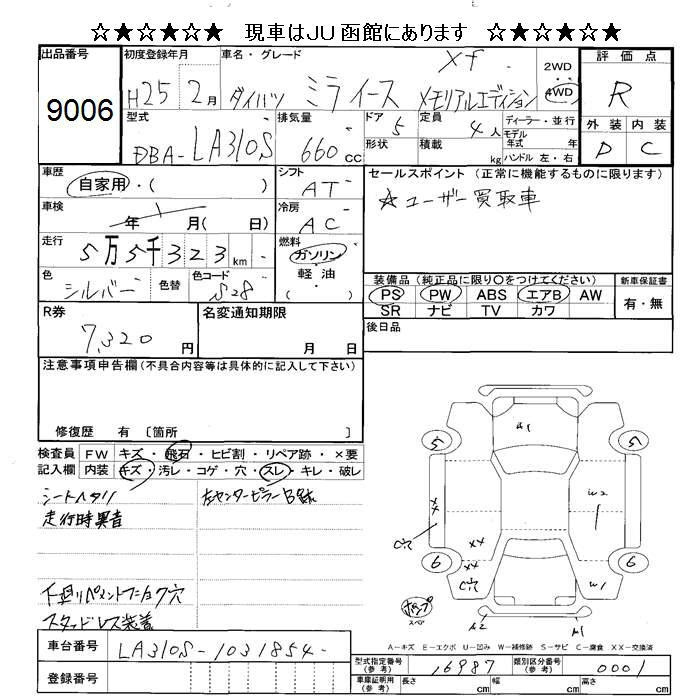 ☆★☆★☆ 現車はJU函館にあります ☆★☆★☆
出品番号 9006
初度登録年月 H25 2月
車名・グレード ダイハツ ミライース Xf メモリアルエディション
2WD
4WD
評価点 R
外装 内装
D C
型式 DBA-LA310S
排気量 660 cc
ドア 5
定員 4人
形状
積載 kg
ディーラー・並行
モデル年式 年
ハンドル 左・右
車歴 自家用・( )
シフト AT
セールスポイント (正常に機能するものに限ります)
☆ユーザー買取車
車検 年 月( 日)
冷房 AC
走行 5万5千323km
燃料 ガソリン
軽油
( )
色 シルバー 色替
色コード S28
装備品(純正品に限り〇をつけてください)
新車保証書
PS PW ABS エアB AW
SR ナビ TV カワ
有・無
R券 7,320円
名変通知期限 月 日
後日品
注意事項申告欄(不具合内容等は具体的に記入して下さい)
修復歴 有 〔箇所 〕
検査員記入欄
FW キズ・飛石・ヒビ割・リペア跡・×要
内装 キズ・汚レ・コゲ・穴・スレ・キレ・破レ
シートヘタリ
走行時異音
左センターピラーB錆
下廻りペイントフロア穴
スタッドレス装着
A1
5 5
XX W2
C穴 XX
6 6
C穴 W1
ポンプ
スペア
A2 A1
A-キズ E-エクボ U-凹み W-補修跡 S-サビ C-腐食 XX-交換済
車台番号 LA310S-1031854
登録番号
型式指定番号(参考) 16987
類別区分番号(参考) 0001
車庫証明用(参考) 長さ cm 幅 cm 高さ cm